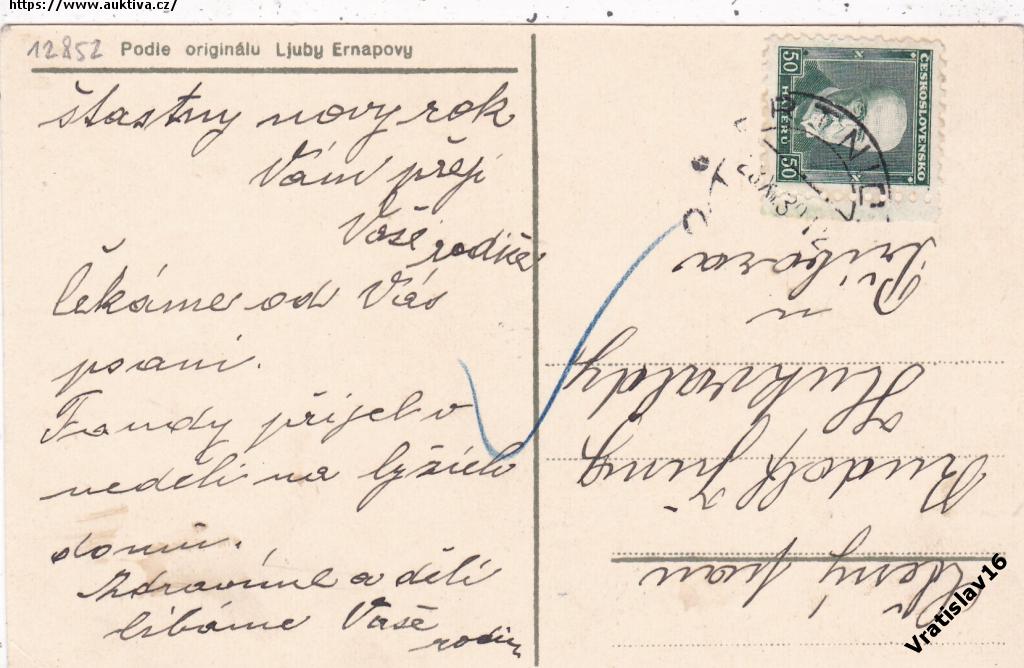 https://www.auktiva.cz/
12852 Podle originálu Ljuby Ernapovy
štastny novy rok
Vám přeji
Vaše rodiče
čekáme od Vás
psani.
Fandy přijel v
neděli na lyžich
domu.
Zdravíme a děti
libáme Vaše
rodiče
ČESKOSLOVENSKO
50 HALÉŘŮ 50
Ctěný pan
Rudolf
Hukvaldy
u
Příbora
Vratislav16